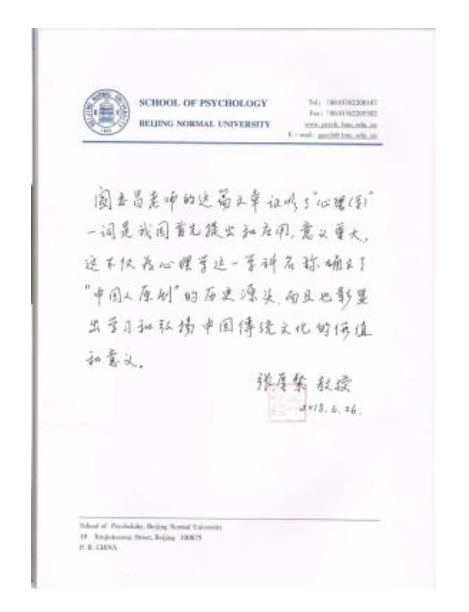 SCHOOL OF PSYCHOLOGY
BEIJING NORMAL UNIVERSITY
阎书昌老师的这篇文章证明了"心理(学)"
一词是我国首先提出和应用,意义重大,
这不仅为心理学这一学科名称确立了
"中国人原创"的历史源头,而且也彰显
出学习和弘扬中国传统文化的价值
和意义。
张厚粲 教授
2018.6.26.
School of Psychology, Beijing Normal University
19 Xinjiekouwai Street, Beijing 100875
P. R. CHINA